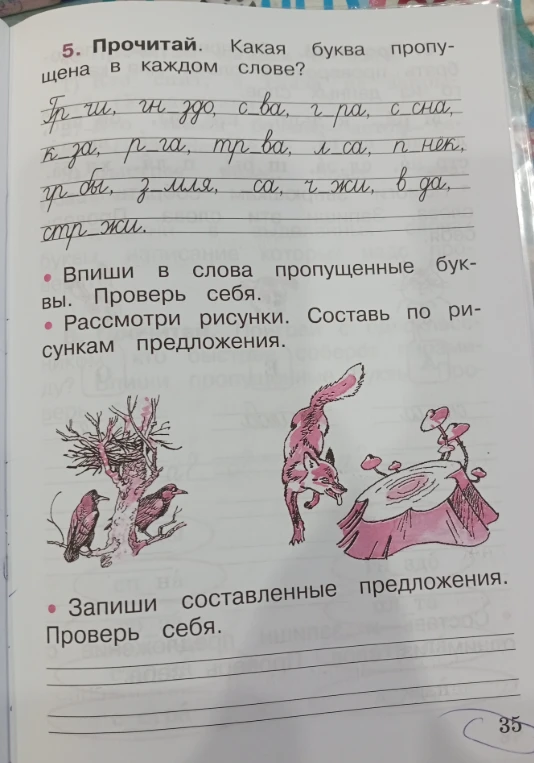 5. Прочитай. Какая буква пропу-
щена в каждом слове?
Гр_чи, гн_здо, с_ва, г_ра, с_сна,
к_за, р_га, тр_ва, л_са, п_нек,
гр_бы, з_мля, _са, ч_жи, в_да,
стр_жи.
• Впиши в слова пропущенные бук-
вы. Проверь себя.
• Рассмотри рисунки. Составь по ри-
сункам предложения.
• Запиши составленные предложения.
Проверь себя.
35